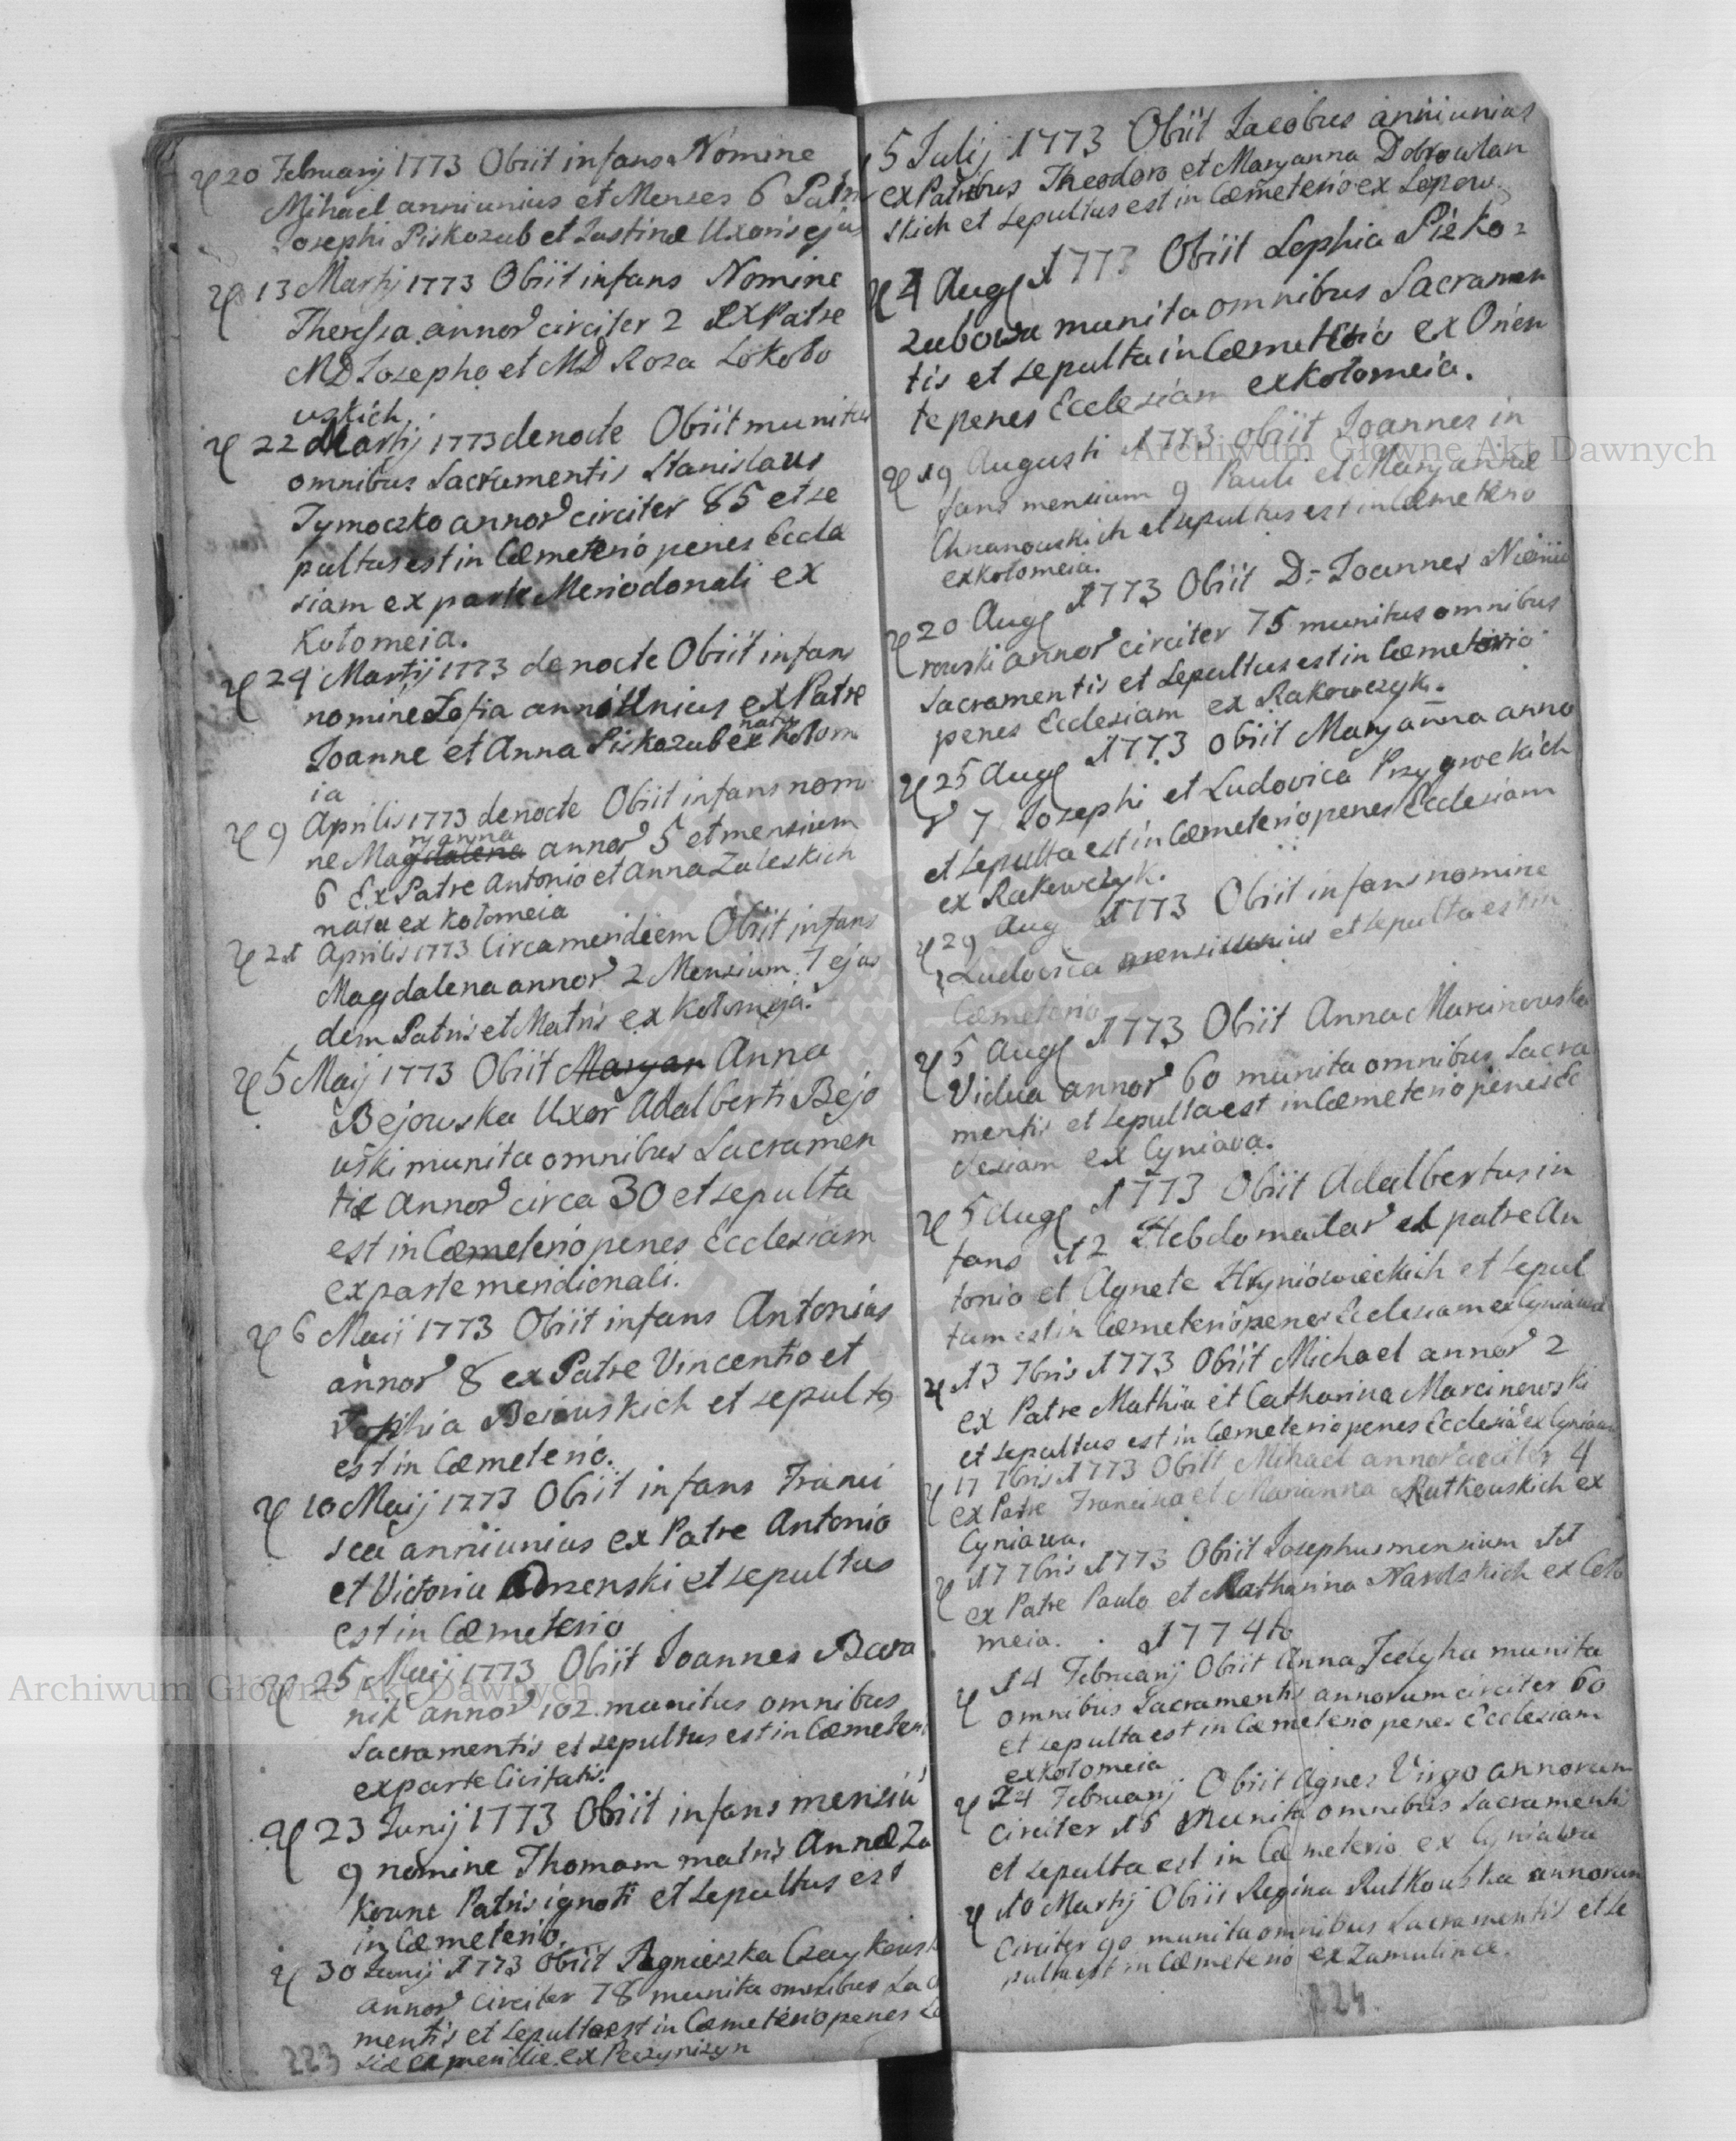 20 Februarij 1773 Obiit infans Nomine
Mihael anni unius et Menses 6 Patris
Josephi Piskozub et Justinæ Uxoris ejus
13 Martij 1773 Obiit infans Nomine
Theressa annor circiter 2 ex Patre
MD Josepho et MD Roza Sokoło
wskich
22 Martij 1773 de nocte Obiit munitus
omnibus Sacramentis Stanislaus
Tymoczko annor circiter 85 et se
pultus est in Cæmeterio penes Eccle
siam ex parte Meriodonali ex
Kołomeia.
24 Martij 1773 de nocte Obiit infans
nomine Zofia anni Unius ex Patre
Joanne et Anna Piskozub ex Kołom
nata
ia
9 Aprilis 1773 de nocte Obiit infans nomi
ryanna
ne Magdalena annor 5 et mensium
6 Ex Patre Antonio et Anna Zaleskich
nata ex Kołomeia
21 Aprilis 1773 Circa meridiem Obiit infans
Magdalena annor 2 Mensium 7 ejus
dem Patris et Matris ex Kołomeja.
5 Maij 1773 Obiit Maryan Anna
Bejowska Uxor Adalberti Bejo
wski munita omnibus Sacramen
tis Annor circa 30 et sepulta
est in Cæmeterio penes Ecclesiam
ex parte meridionali.
6 Maij 1773 Obiit infans Antonius
annor 8 ex Patre Vincentio et
Sophia Beiowskich et sepult9
est in Cæmeterio.
10 Maij 1773 Obiit infans Franci
sca anni unius ex Patre Antonio
et Victoria et sepultus
est in Cæmeterio
25 Maij 1773 Obiit Joannes Bara
nik annor 102 munitus omnibus
Sacramentis et sepultus est in Cæmeteri
ex parte Civitatis.
23 Junij 1773 Obiit infans mensiu
9 nomine Thomam matris Annæ Za
kowne Patris ignoti et Sepultus est
in Cæmeterio.
30 Junij 1773 Obiit Agnieszka Czaykowsk
annor circiter 78 munita omnibus Sac
mentis et Sepulta est in Cæmeterio penes
siæ ex meridie ex Peczyniżyn
223
5 Julij 1773 Obiit Jacobus anni unius
ex Patribus Theodoro et Maryanna Dobrowlan
skich et sepultus est in Cæmeterio ex
4 Aug 1773 Obiit Sophia Pisko=
zubowa munita omnibus Sacramen
tis et sepulta in Cæmeterio ex Orien
te penes Ecclesiam ex Kołomeia.
19 Augusti 1773 obiit Joannes in
fans mensium 9 Pauli et Maryannæ
Chzanowskich et sepultus est in Cæmeterio
ex Kołomeia.
20 Aug 1773 Obiit D: Joannes
rowski annor circiter 75 munitus omnibus
Sacramentis et Sepultus est in Cæmeterio
penes Ecclesiam ex Rakowczyk.
25 Aug 1773 obiit Maryanna anno
r 7 Josephi et Ludovica Przygrockich
et Sepulta est in Cæmeterio penes Ecclesiam
ex Rakowczyk.
29 Aug 1773 Obiit infans nomine
Ludovica mensis unius et sepulta est in
Cæmeterio
5 Aug 1773 Obiit Anna Marcinowska
Vidua annor 60 munita omnibus Sacra
mentis et Sepulta est in Cæmeterio penes Ec
clesiam ex Cyniava.
5 Aug 1773 Obiit Adalbertus in
fans 12 Hebdomadar ex patre An
tonio et Agnete Hryniowieckich et Sepul
tum est in Cæmeterio penes Ecclesiam ex Cyniawa
13 7bris 1773 Obiit Michael annor 2
ex Patre Mathia et Catharina Marcinowski
et Sepultus est in Cæmeterio penes Ecclesia ex Cyniawa
17 7bris 1773 Obiit Mihael annor circiter 4
ex Patre Francisco et Marianna Rutkowskich ex
Cyniawa.
17 7bris 1773 Obiit Josephus mensium 11
ex Patre Paulo et Katharina ex Coło
meia.
1774to
14 Februarij Obiit Anna Jedyha munita
omnibus Sacramentis annorum circiter 60
et sepulta est in Cæmeterio penes Ecclesiam
ex Kołomeia
24 Februarij Obiit Agnes Virgo annorum
circiter 15 Munita omnibus Sacramenti
et sepulta est in Cæmeterio ex Cyniawa
10 Martij Obiit Regina Rutkowska annorum
Circiter 90 munita omnibus Sacramentis et Se
pulta est in Cæmeterio ex Zamulince.
224.
Archiwum Główne Akt Dawnych
Archiwum Główne Akt Dawnych